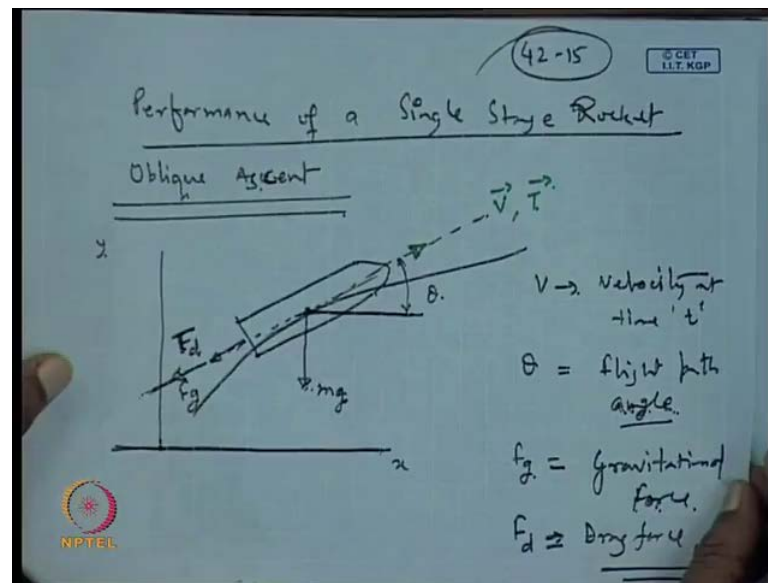 42-15
© CET
I.I.T. KGP
Performance of a Single Stage Rocket
Oblique Ascent
y
V, T
θ
V → Velocity at
time 't'
Fd
fg
mg
θ = flight path
angle
x
fg = Gravitational
force
Fd ⇒ Drag force
NPTEL